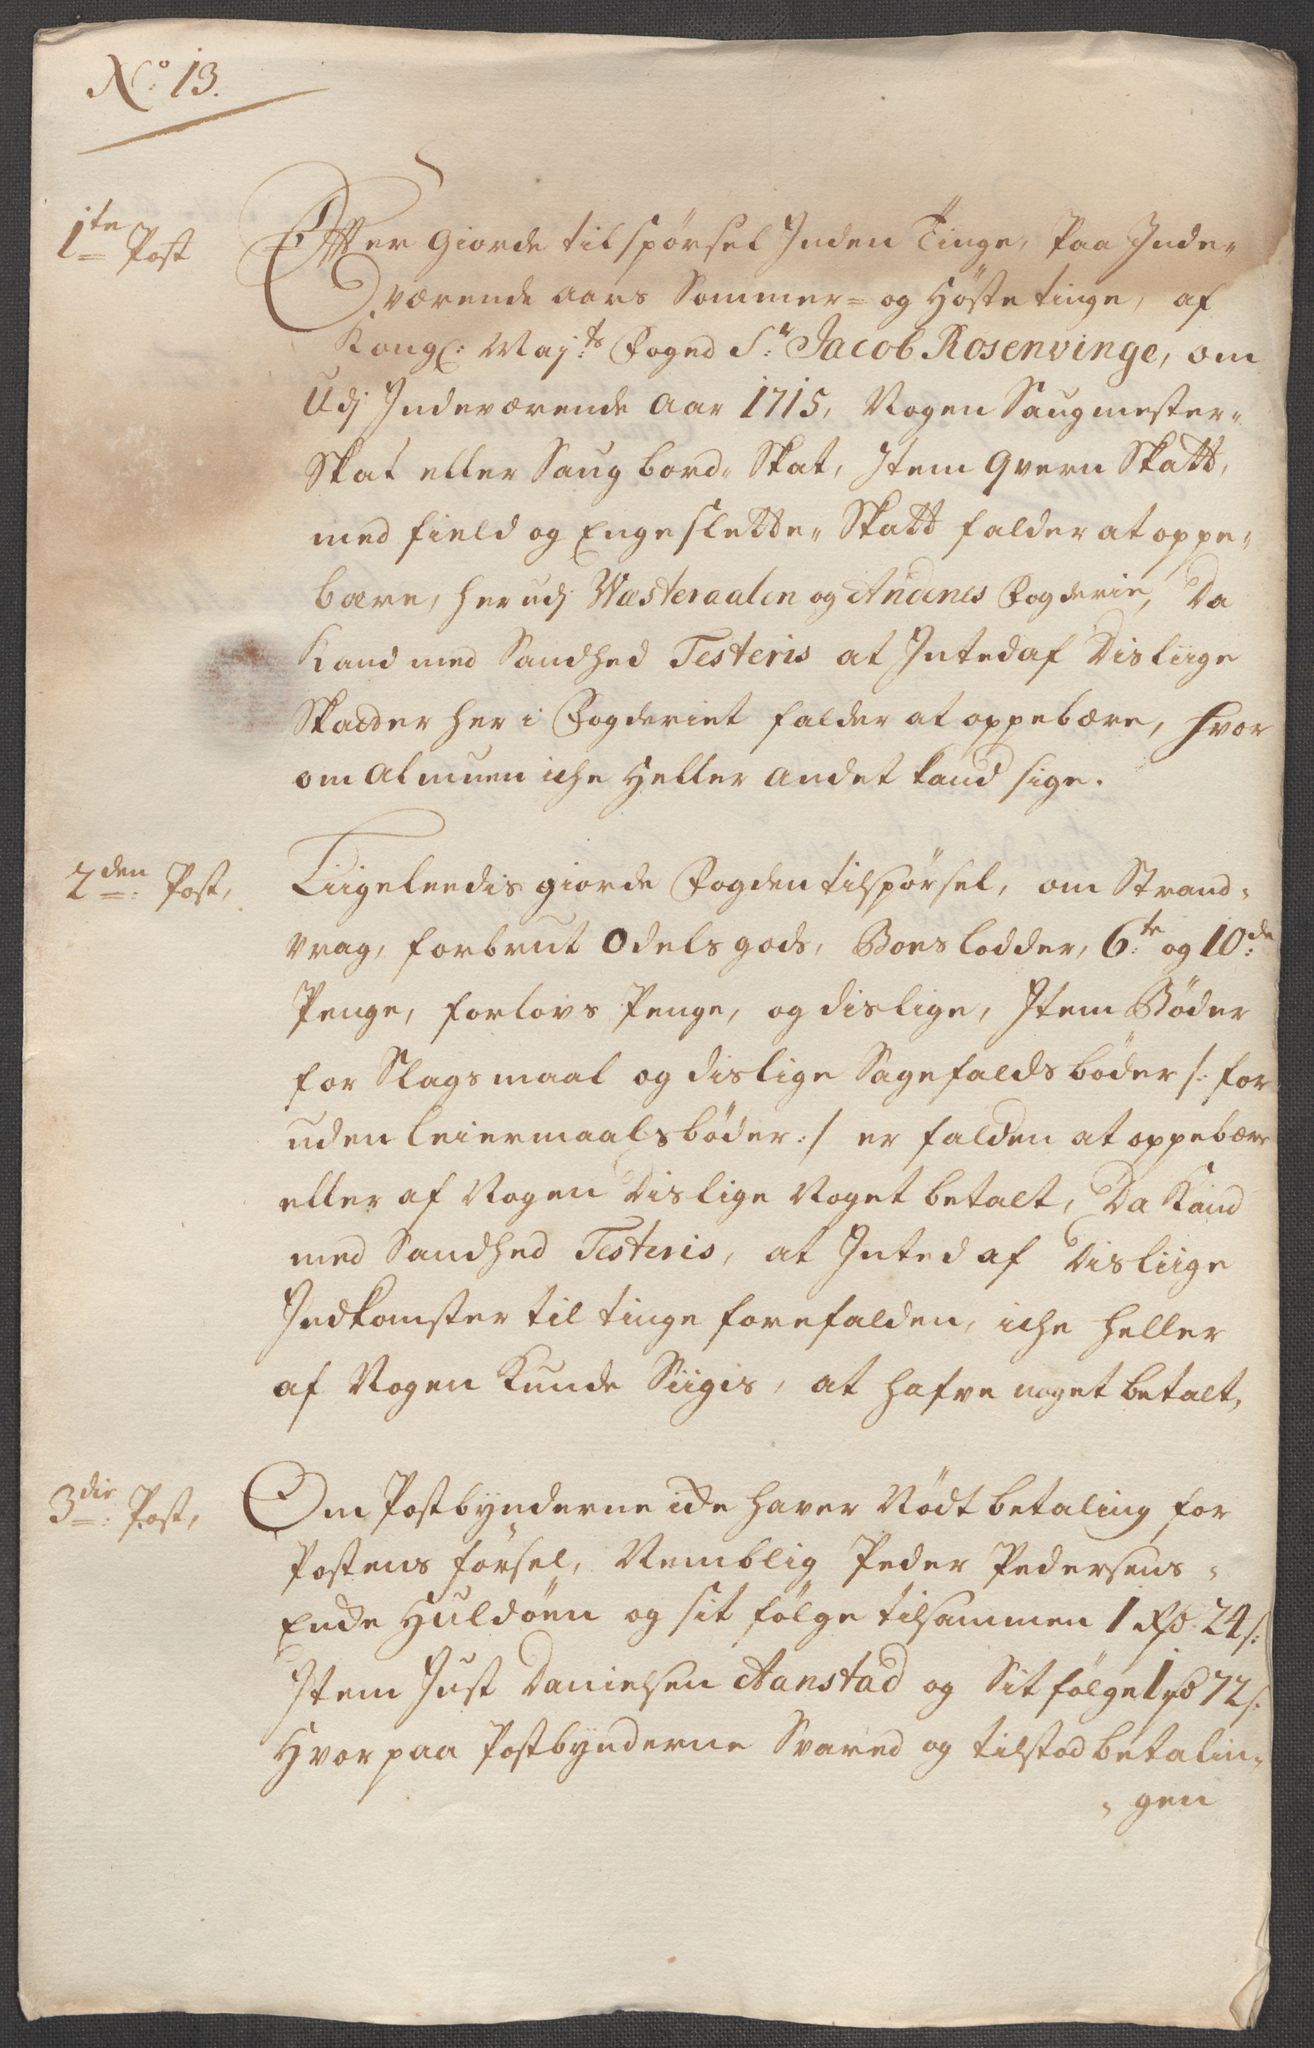 No 13.
1te Post
Efter giorde tilspörsel Inden Tinge, Paa Inde-
værende aars Sommer- og Höste tinge, af
Kongl: Maj:ts Foged Sr: Jacob Rosenvinge, om
Udj Indeværende Aar 1715, Nogen Saugmester-
Skat eller Saug bord- Skat, Item Qvern Skatt,
med field og Engeslette- Skatt falder at oppe-
bære, her udj Wæsteraalen og Andenes Fogderie, Da
Kand med Sandhed Testeris at Inted af Disliige
Skadder her i Fogderiet falder at oppebære, hvor
om Almuen iche heller andet kand sige.
2den: Post,
Liigeleedis giorde Fogden tilspörsel, om Strand-
vrag, forbrut Odelsgods, Boeslodder, 6:te og 10:de
Penge, forlovs Penge, og dislige, Item Bøder
for Slagsmaal og dislige Sagefaldsbøder /: for
uden leiermaalsbøder :/ er falden at oppebære
eller af Nogen Dislige Noget betalt, Da Kand
med Sandhed Testeris, at Inted af Disliige
Indkomster til tinge forefalden, iche heller
af Nogen Kunde Siigis, at hafve noget betalt,
3die: Post,
Om Postbynderne ide haver Nödt betaling for
Postens försel, Nemblig Peder Pedersens
Ende Huldöen og sit følge tilsammen 1 Rd 24 s:
Item Just Danielsen Aanstad og Sit følge 1 rd 72 s:
Hvorpaa Postbynderne Svared og tilstod betalin-
gen